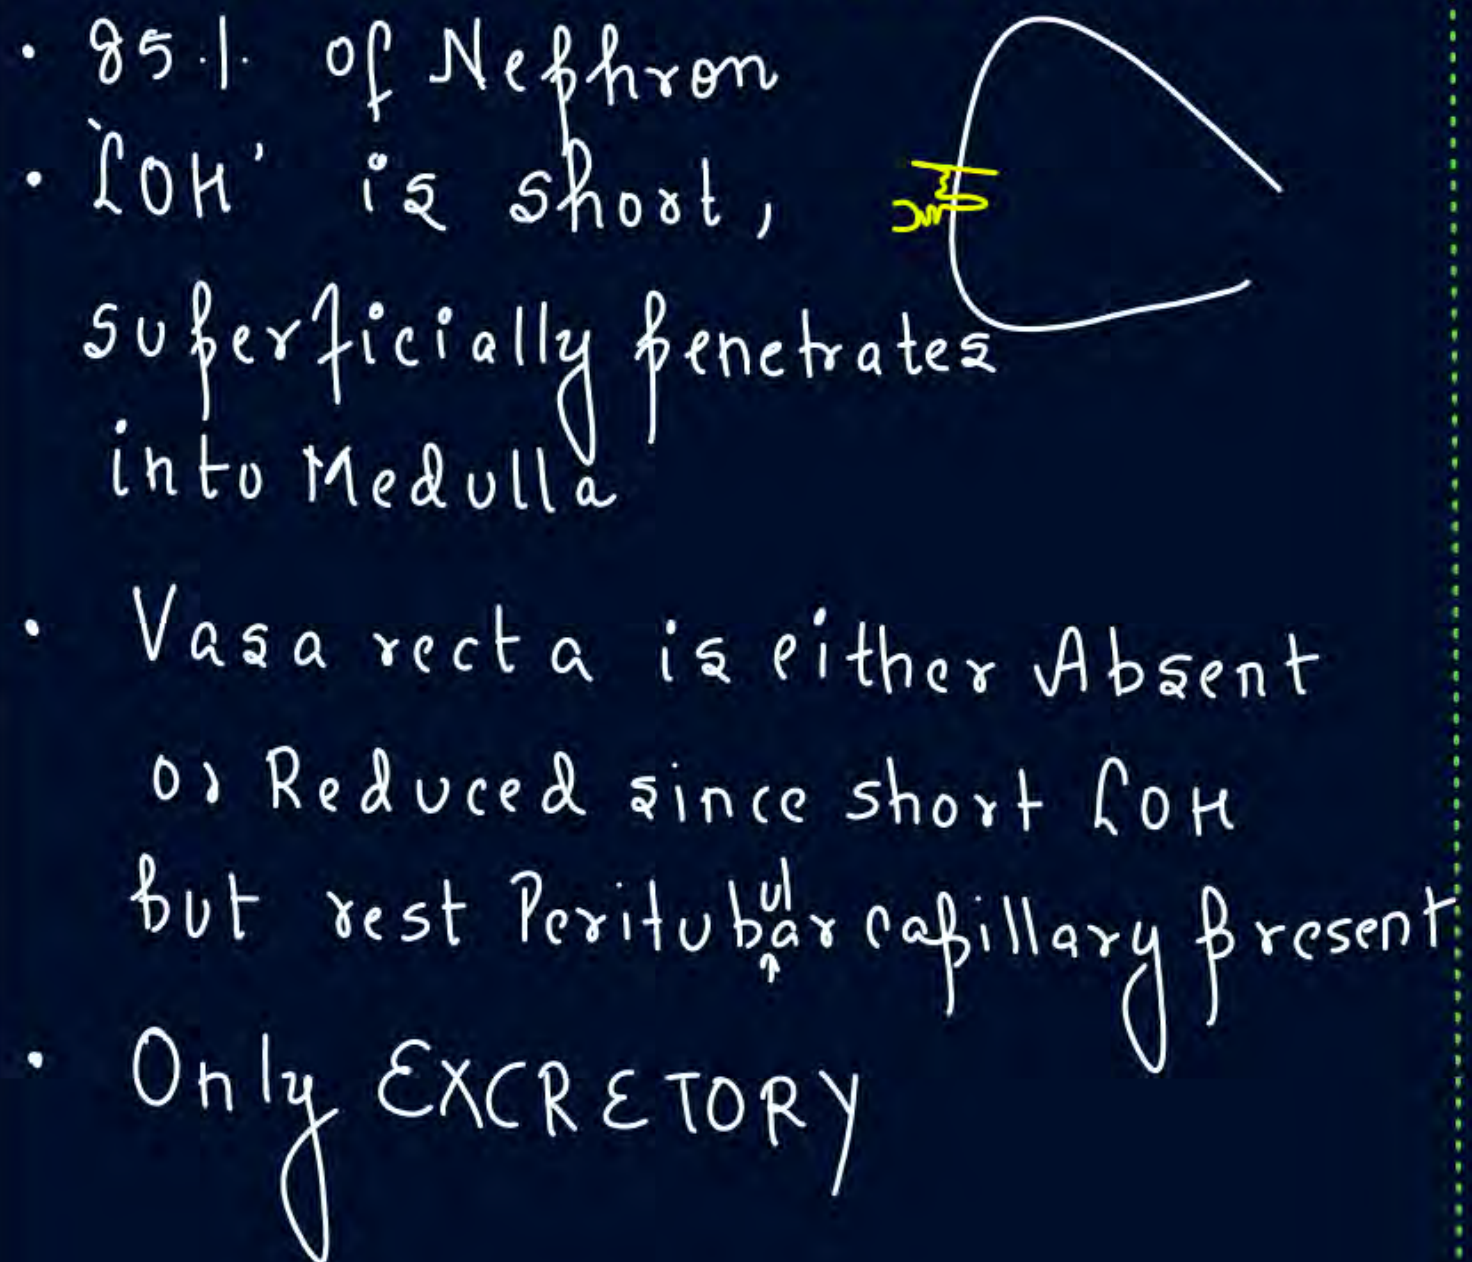 • 85% of Nephron
• 'LOH' is short,
superficially penetrates
into Medulla
• Vasa recta is either Absent
or Reduced since short LOH
but rest Peritubular capillary present
• Only EXCRETORY